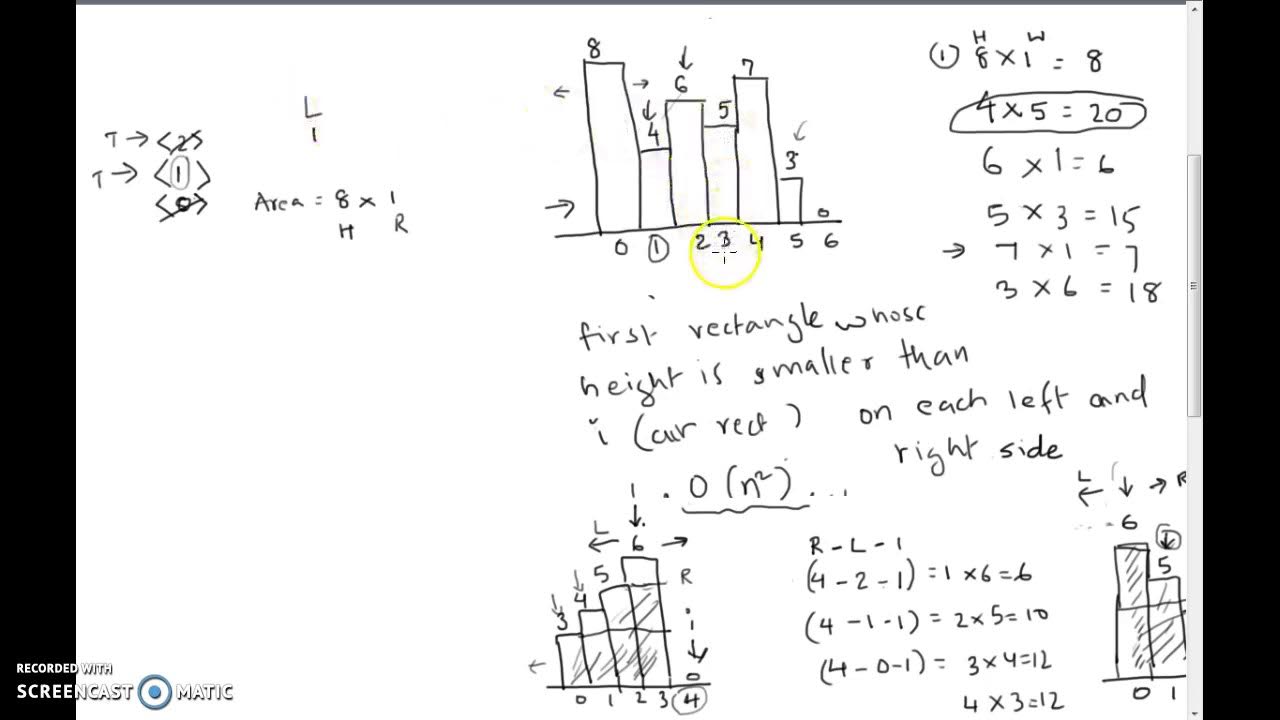 T → <2>
T → <1>
<0>
L
1
Area = 8 × 1
H R
8 4 6 5 7 3 0
0 1 2 3 4 5 6
H W
① 8 × 1 = 8
4 × 5 = 20
6 × 1 = 6
5 × 3 = 15
→ 7 × 1 = 7
3 × 6 = 18
first rectangle whose
height is smaller than
i (cur rect) on each left and
right side
1 . O(n²) ...
L
← 6 →
3 4 5 R
0
0 1 2 3 4
R - L - 1
(4 - 2 - 1) = 1 × 6 = 6
(4 - 1 - 1) = 2 × 5 = 10
(4 - 0 - 1) = 3 × 4 = 12
4 × 3 = 12
L R
← ↓ →
6
5
0 1
RECORDED WITH
SCREENCAST MATIC